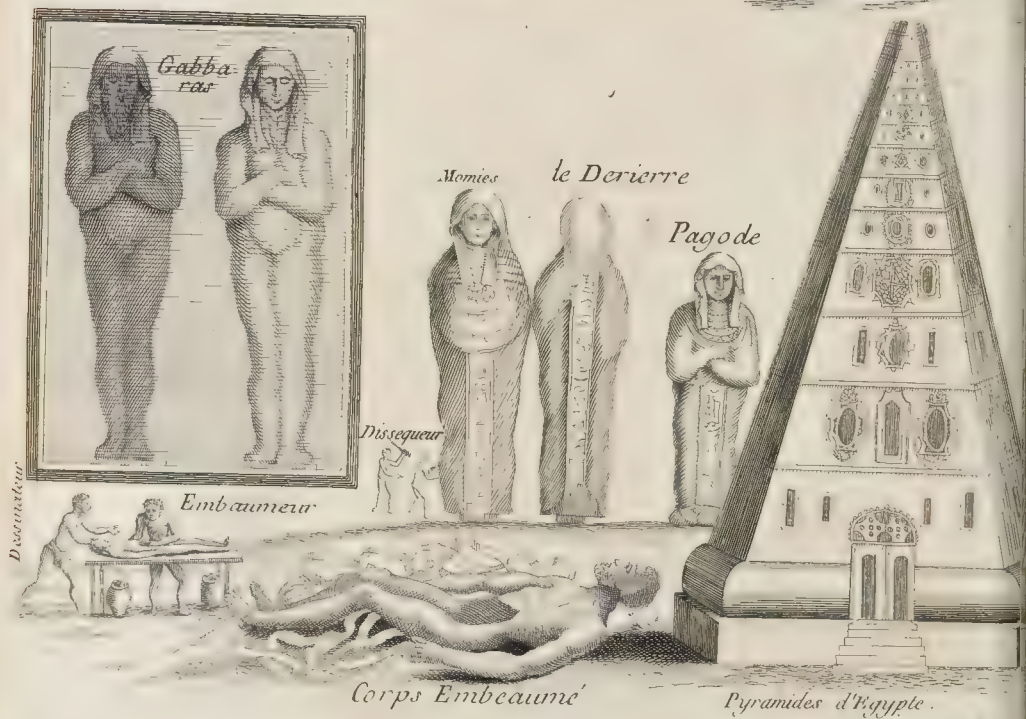 Gabba-
ras
Momies
le Derierre
Pagode
Dissequeur
Dessinateur
Embaumeur
Corps Embeaumé
Pyramides d'Egypte.